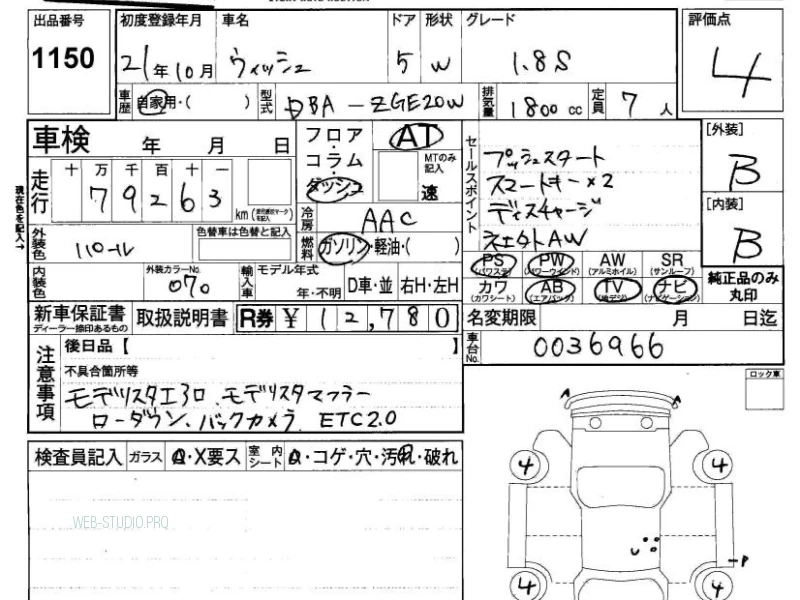 出品番号 初度登録年月 車名 ドア 形状 グレード 評価点
1150 21年10月 ウィッシュ 5 W 1.8S 4
車歴 自家用・( ) 型式 DBA-ZGE20W 排気量 1800cc 定員 7人
車検 年 月 日
フロア・コラム・ダッシュ AT MTのみ記入 速
セールスポイント
プッシュスタート
スマートキー×2
ディスチャージ
[外装] B
[内装] B
走行 十 万 千 百 十 一
79263 km
現在色を記入→
冷房 AAC
燃料 ガソリン・軽油・( )
外装色 パール 色替車は色替と記入
内装色 外装カラーNo. 070 輸入車 モデル年式 年・不明 D車・並 右H・左H
PS (パワステ) PW (パワーウインド) AW (アルミホイル) SR (サンルーフ)
カワ (カワシート) AB (エアバック) TV (地デジ) ナビ (ナビゲーション)
純正品のみ丸印
新車保証書 ディーラー捺印あるもの 取扱説明書 R券 ¥ 12,780
名変期限 月 日迄
車台No. 0036966
注意事項
後日品【 】
不具合箇所等
モデリスタエアロ、モデリスタマフラー
ローダウン、バックカメラ ETC2.0
ロック車
検査員記入 ガラス A・X要ス 室内シート A・コゲ・穴・汚れ・破れ
WEB-STUDIO.PRO
A A
4 4
P
4 4